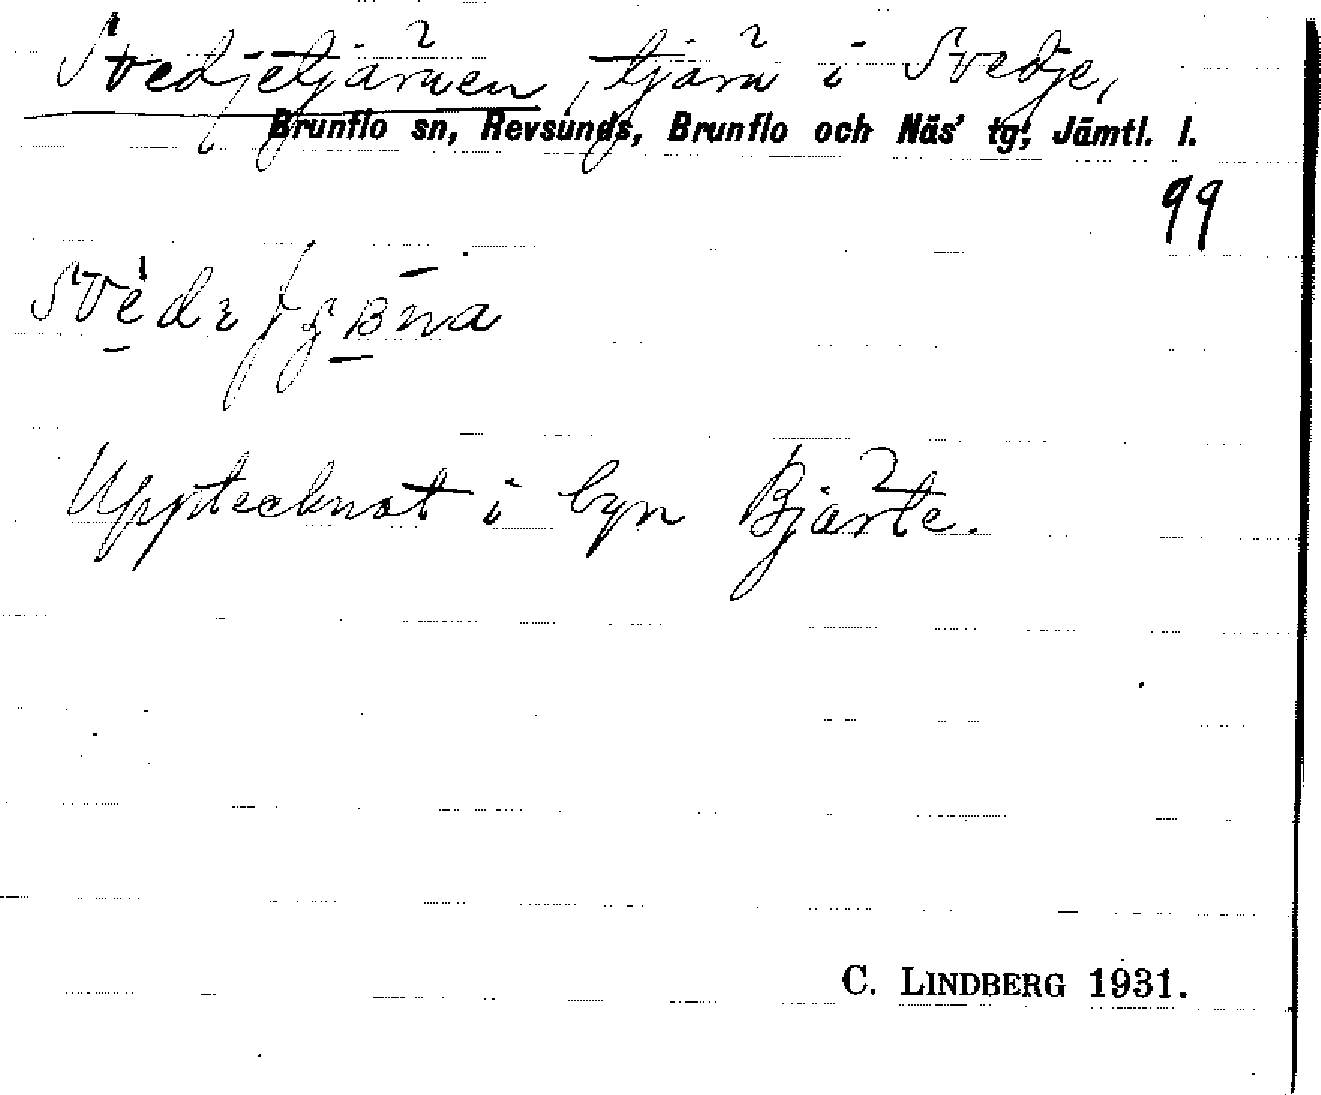 Svedjetjärnen, tjärn i Svedje,
Brunflo sn, Revsunds, Brunflo och Näs' tg, Jämtl. l.
99
Upptecknat i byn Bjärte.
C. LINDBERG 1931.